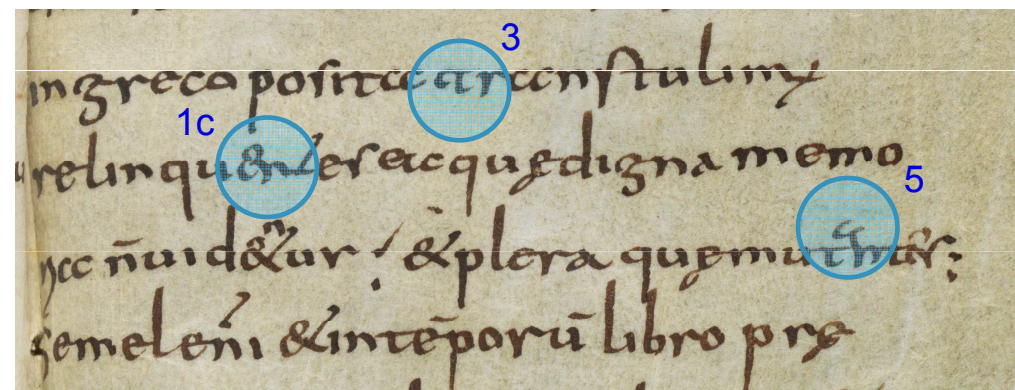 3
ingreco posita transtulimꝰ
1c
relinquentes eaquę digna memo
5
n̄ uid&ur & plera quę
semel eni &intēporū libro prę